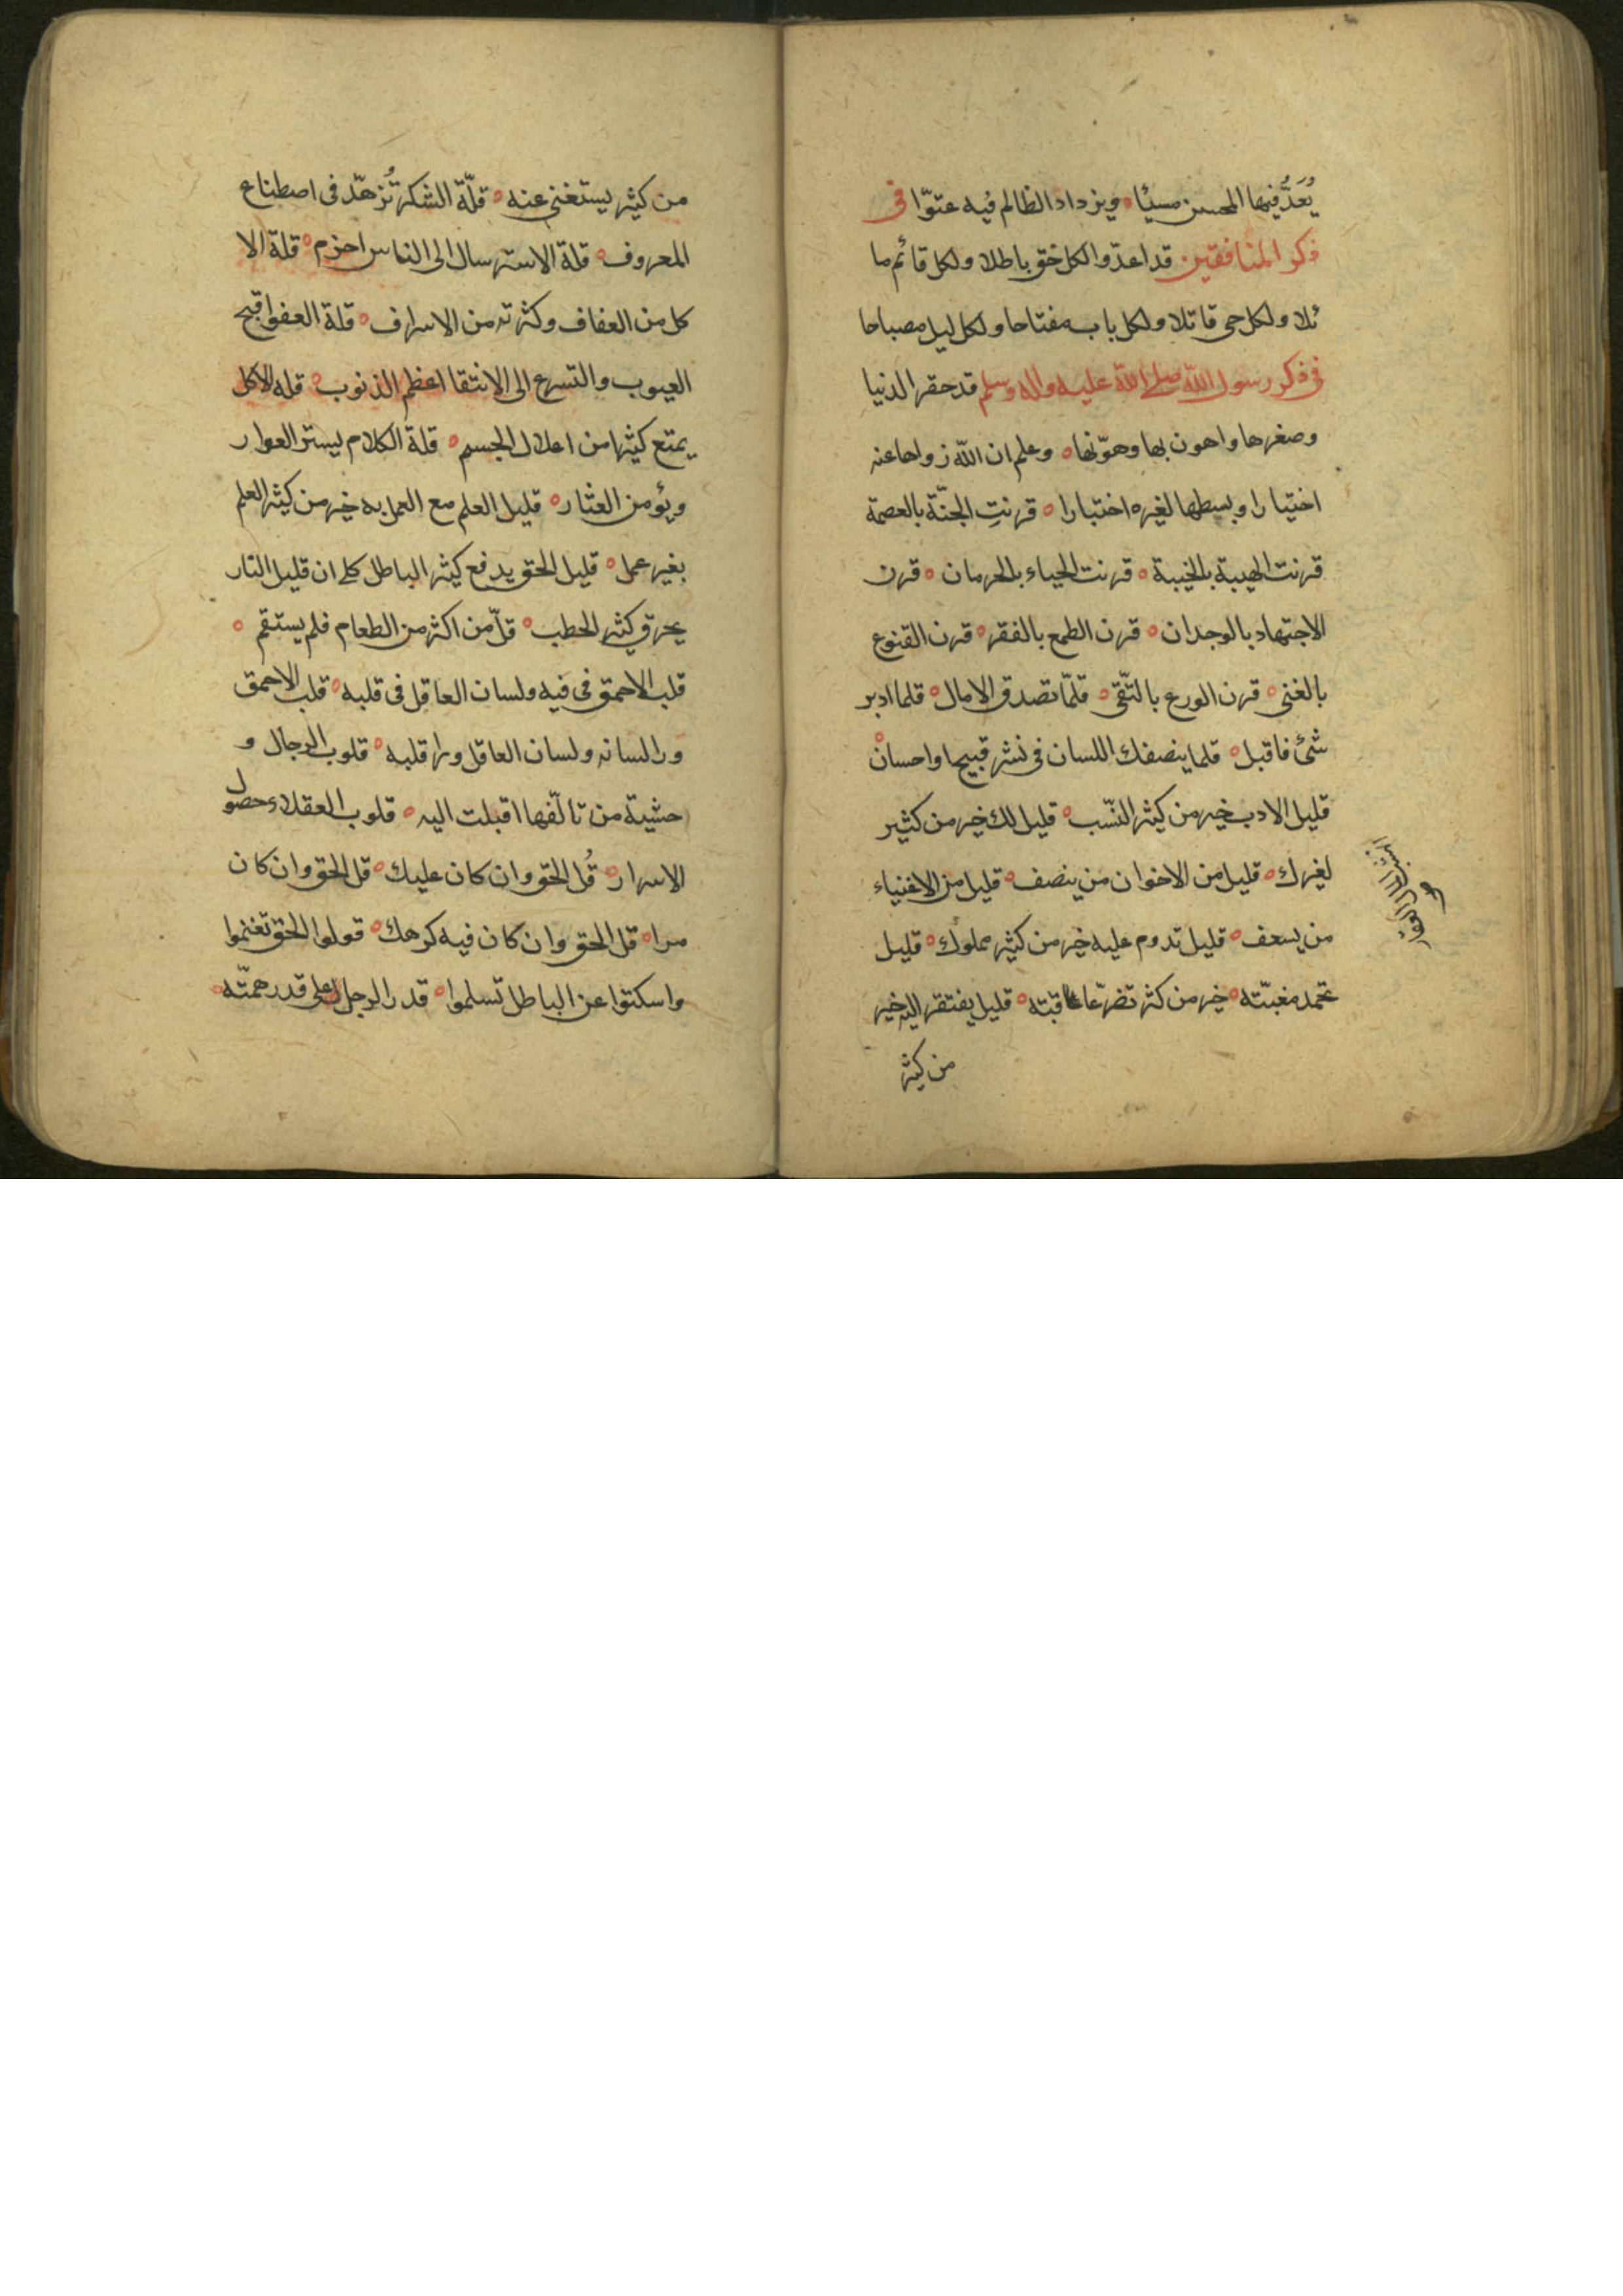 يُعَدُّ فيها المحسن مسيئا ويزداد الظالم فيه عتوّا في
ذكر المنافقين قد اعدّوا لكل حق باطلا ولكل قائم ما
ئلا ولكل حى قاتلا ولكل باب مفتاحا ولكل ليل مصباحا
فى ذكر رسول الله صلى الله عليه واله وسلم قد حقر الدنيا
وصغرها واهون بها وهوّنها وعلم ان الله زواها عنه
اختيارا وبسطها لغيره اختبارا قرنتِ الجنّة بالعصمة
قرنت الهيبة بالخيبة قرنت الحياء بالحرمان قرن
الاجتهاد بالوجدان قرن الطمع بالفقر قرن القنوع
بالغنى قرن الورع بالتّقى قلّما تصدق الامال قلما ادبر
شئ فاقبل قلما ينصفك اللسان فى نشر قبيح او احسان
قليل الادب خير من كثير النّسب قليل لك خير من كثير
لغيرك قليل من الاخوان من ينصف قليل من الاغنياء
من يسعف قليل تدوم عليه خير من كثير مملوك قليل
تحمد مغبّته خير من كثر تضرّ عاقبته قليل يفتقر اليه خير
من كثير
من كثير يستغنى عنه قلّة الشكر تُزهّد فى اصطناع
المعروف قلة الاسترسال الى الناس احزم قلة الا
كل من العفاف وكثرته من الاسراف قلة العفو اقبح
العيوب والتسرع الى الانتقا اعظم الذنوب قله الاكل
يمتع كثيرا من اعلال الجسم قلة الكلام يستر العوار
ويؤمن العثار قليل العلم مع العمل به خير من كثير العلم
بغير عمل قليل الحق يدفع كثير الباطل كما ان قليل النار
يحرق كثير الحطب قلّ من اكثر من الطعام فلم يستقم
قلب الاحمق فى فيه ولسان العاقل فى قلبه قلب الاحمق
ورا لسانه ولسان العاقل ورا قلبه قلوب الرجال و
حشية من تالّفها اقبلت اليه قلوب العقلاء حصول
الاسرار قُل الحق وان كان عليك قل الحق وان كان
مرا قل الحق وان كان فيه كرهك قولوا الحق تغنموا
واسكتوا عن الباطل تسلموا قدر الرجل على قدر همّته